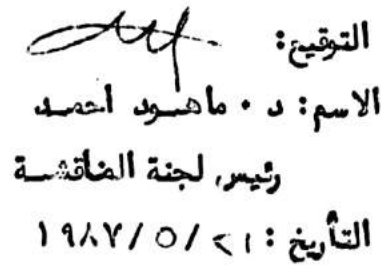 التوقيع:
الاسم: د. ماهود احمد
رئيس لجنة المناقشة
التأريخ: ٢١/٥/١٩٨٧